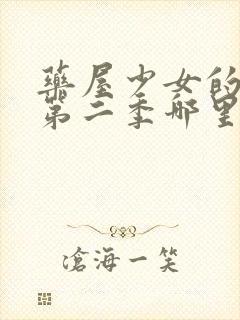 藥屋少女的
第二季哪里
滄海一笑